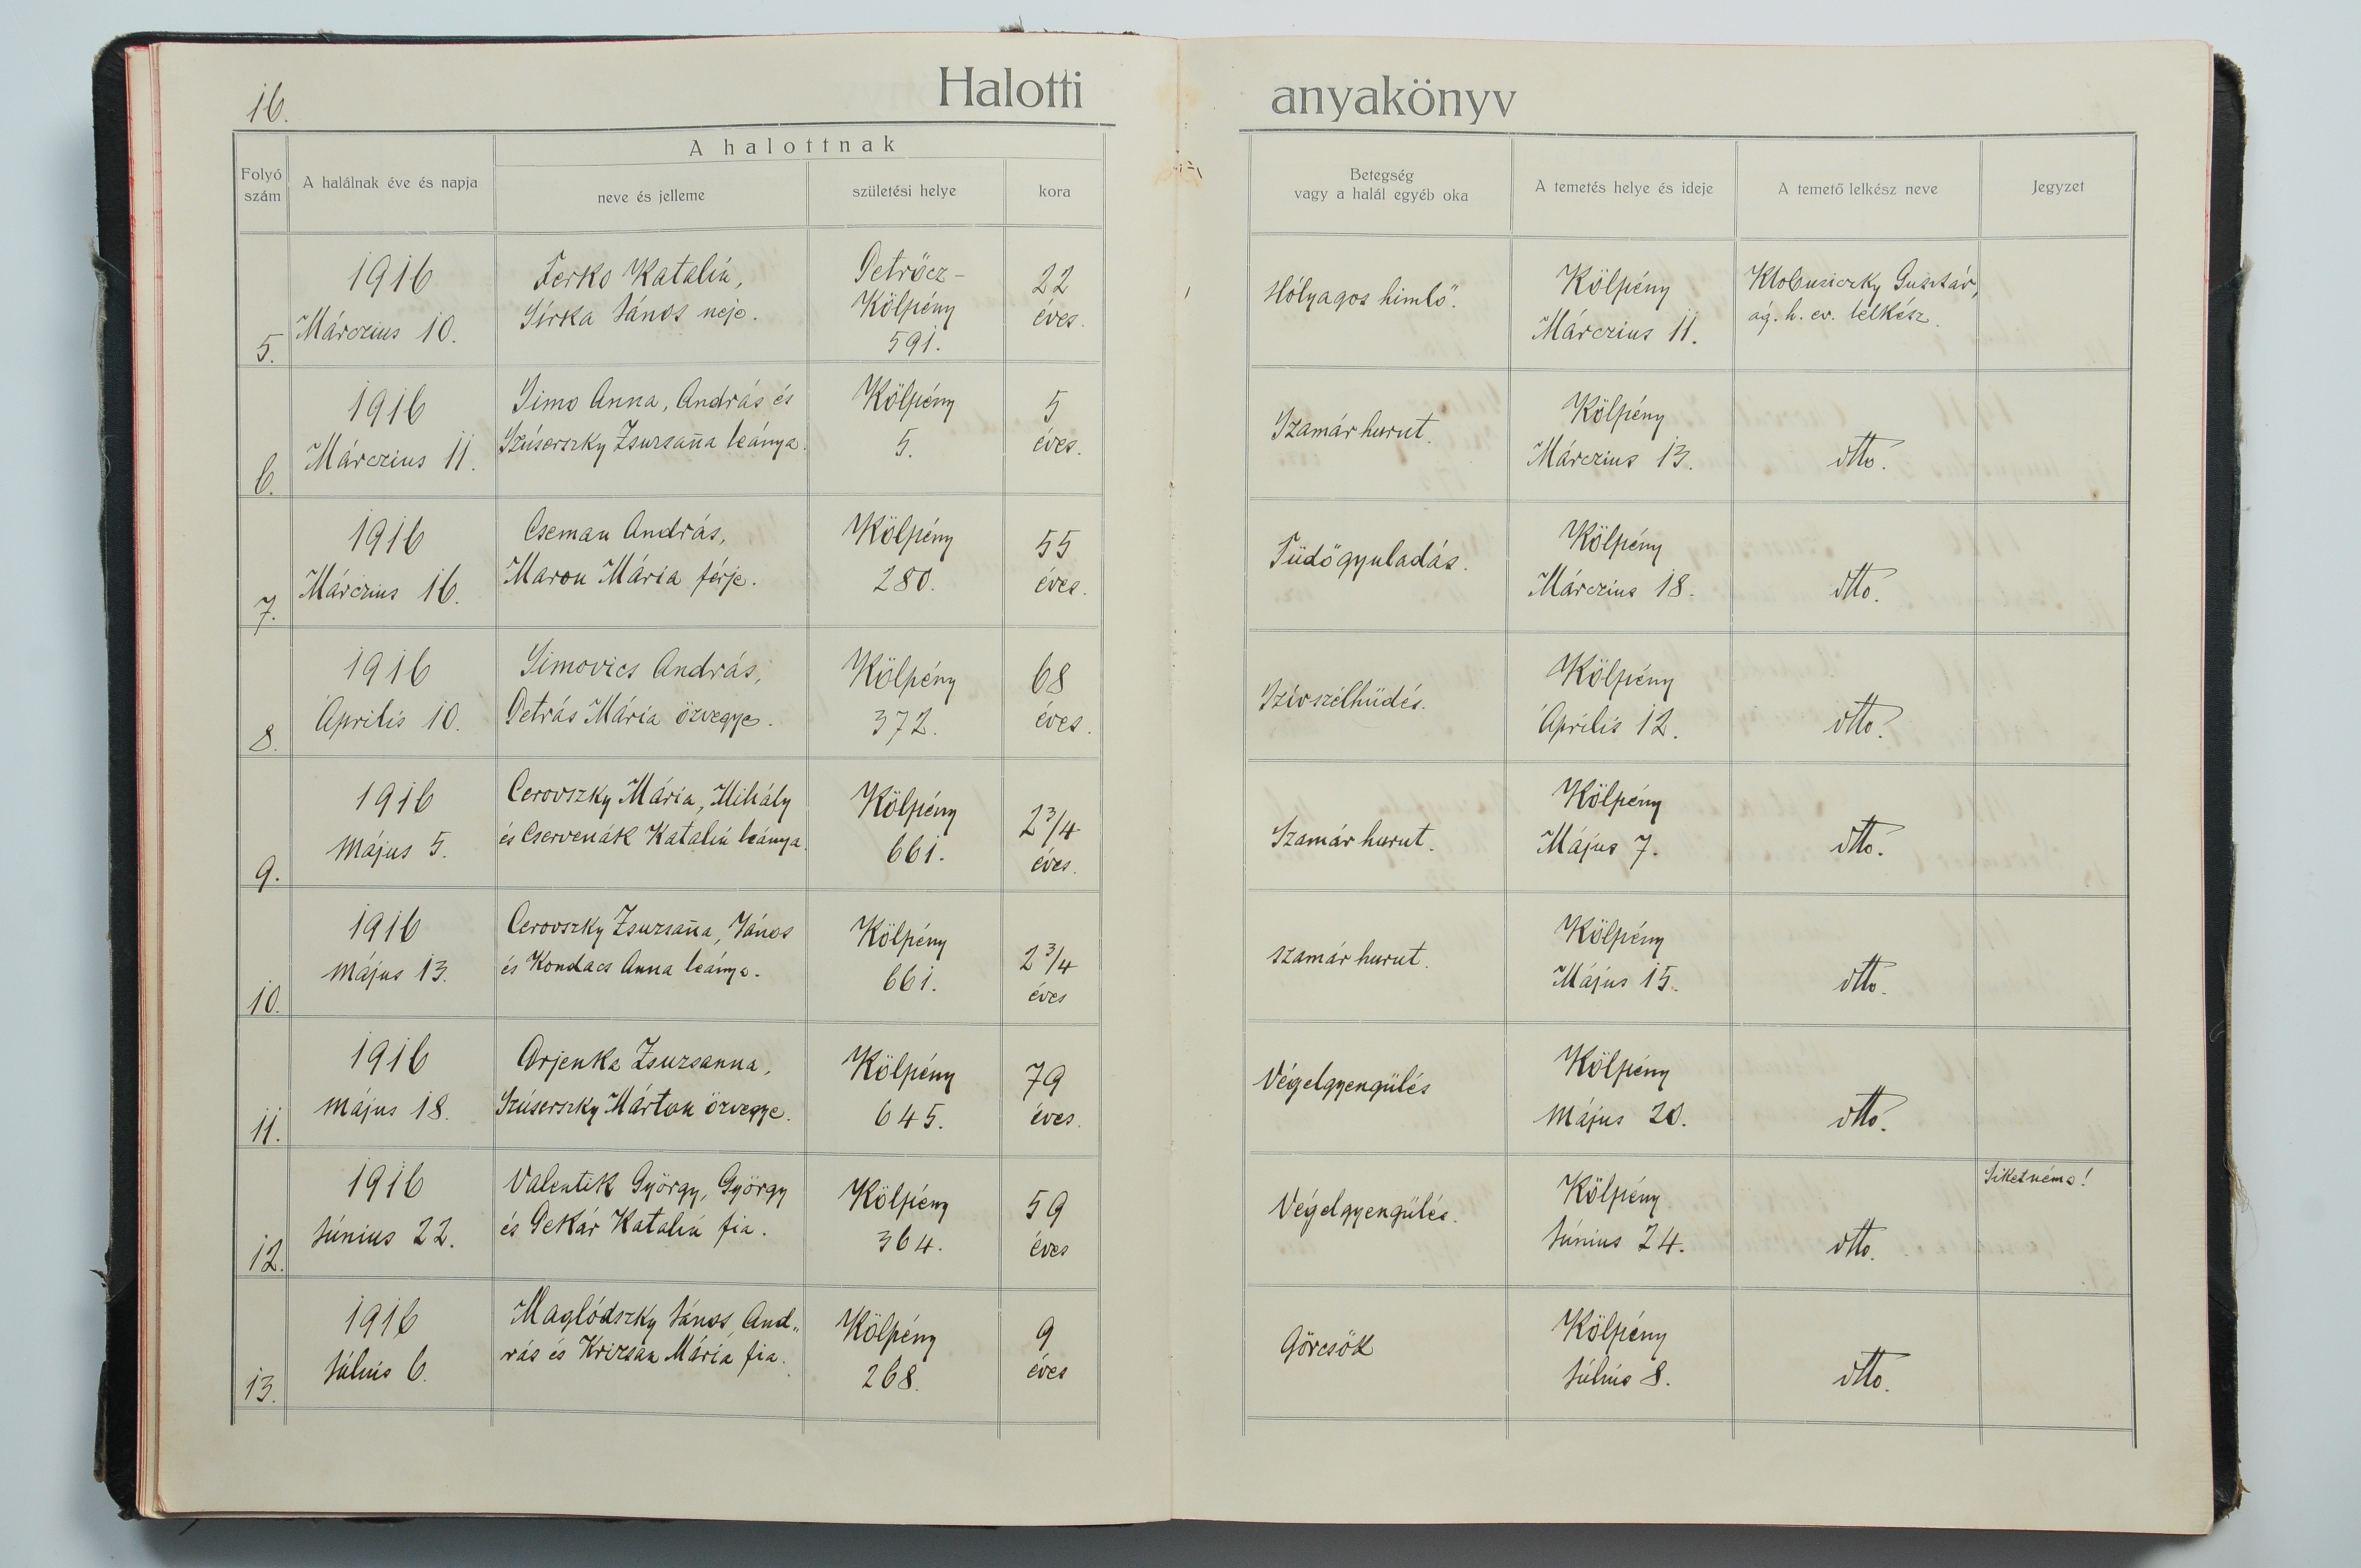 16.
Halotti anyakönyv
Folyó szám
A halálnak éve és napja
A halottnak
neve és jelleme
születési helye
kora
Betegség
vagy a halál egyéb oka
A temetés helye és ideje
A temető lelkész neve
Jegyzet
5.
1916
Márczius 10.
Ferko Katalin,
Sírka János neje.
Petrőcz-
Kölpény
591.
22
éves.
Hólyagos himlő.
Kölpény
Márczius 11.
Klobusiczky Gusztáv,
ág. h. ev. lelkész.
6.
1916
Márczius 11.
Simo Anna, András és
Szúserszky Zsuzsan̄a leánya.
Kölpény
5.
5
éves.
Szamár hurut.
Kölpény
Márczius 13.
dtto.
7.
1916
Márczius 16.
Cseman András,
Maron Mária férje.
Kölpény
280.
55
éves.
Tüdőgyuladás.
Kölpény
Márczius 18.
dtto.
8.
1916
Április 10.
Simovics András,
Petrás Mária özvegye.
Kölpény
372.
68
éves.
Szívszélhüdés.
Kölpény
Április 12.
dtto.
9.
1916
Május 5.
Cerovszky Mária, Mihály
és Cservenák Katalin leánya.
Kölpény
661.
2 3/4
éves.
Szamár hurut.
Kölpény
Május 7.
dtto.
10.
1916
Május 13.
Cerovszky Zsuzsan̄a, János
és Kondacs Anna leánya.
Kölpény
661.
2 3/4
éves
szamár hurut.
Kölpény
Május 15.
dtto.
11.
1916
Május 18.
Arjenka Zsuzsanna,
Szúserszky Márton özvegye.
Kölpény
645.
79
éves.
Végelgyengülés
Kölpény
Május 20.
dtto.
12.
1916
Június 22.
Valentik György, György
és Pekár Katalin fia.
Kölpény
364.
59
éves
Végelgyengülés.
Kölpény
Június 24.
dtto.
Siketnéma!
13.
1916
Július 6.
Maglódszky János, And„
rás és Krizsán Mária fia.
Kölpény
268.
9
éves
Görcsök
Kölpény
Július 8.
dtto.